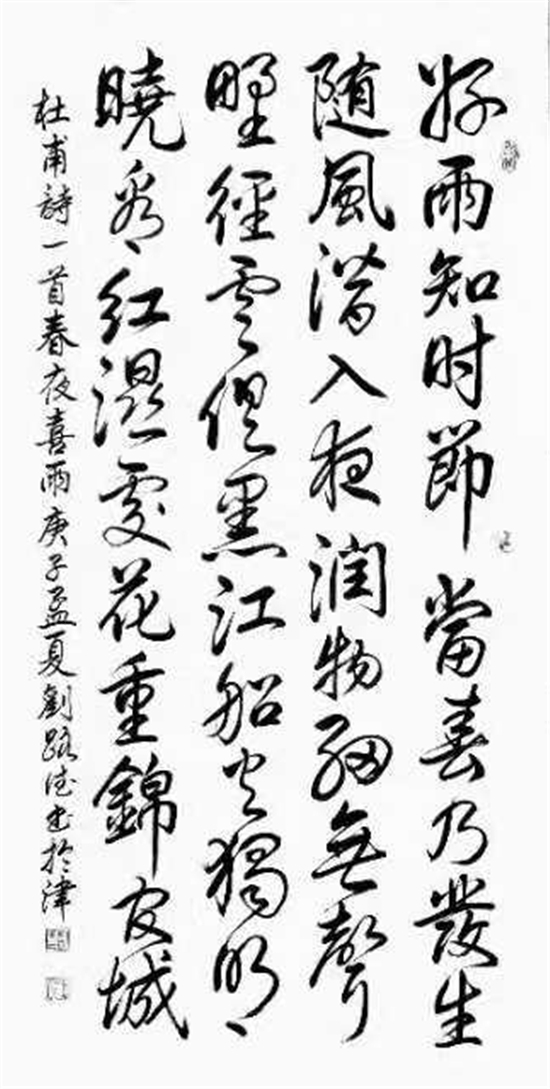 好雨知时節當春乃發生
随風潛入夜润物細無聲
野徑雲俱黑江船火獨明
曉看红濕處花重錦官城
杜甫詩一首春夜喜雨庚子孟夏劉路德书於津